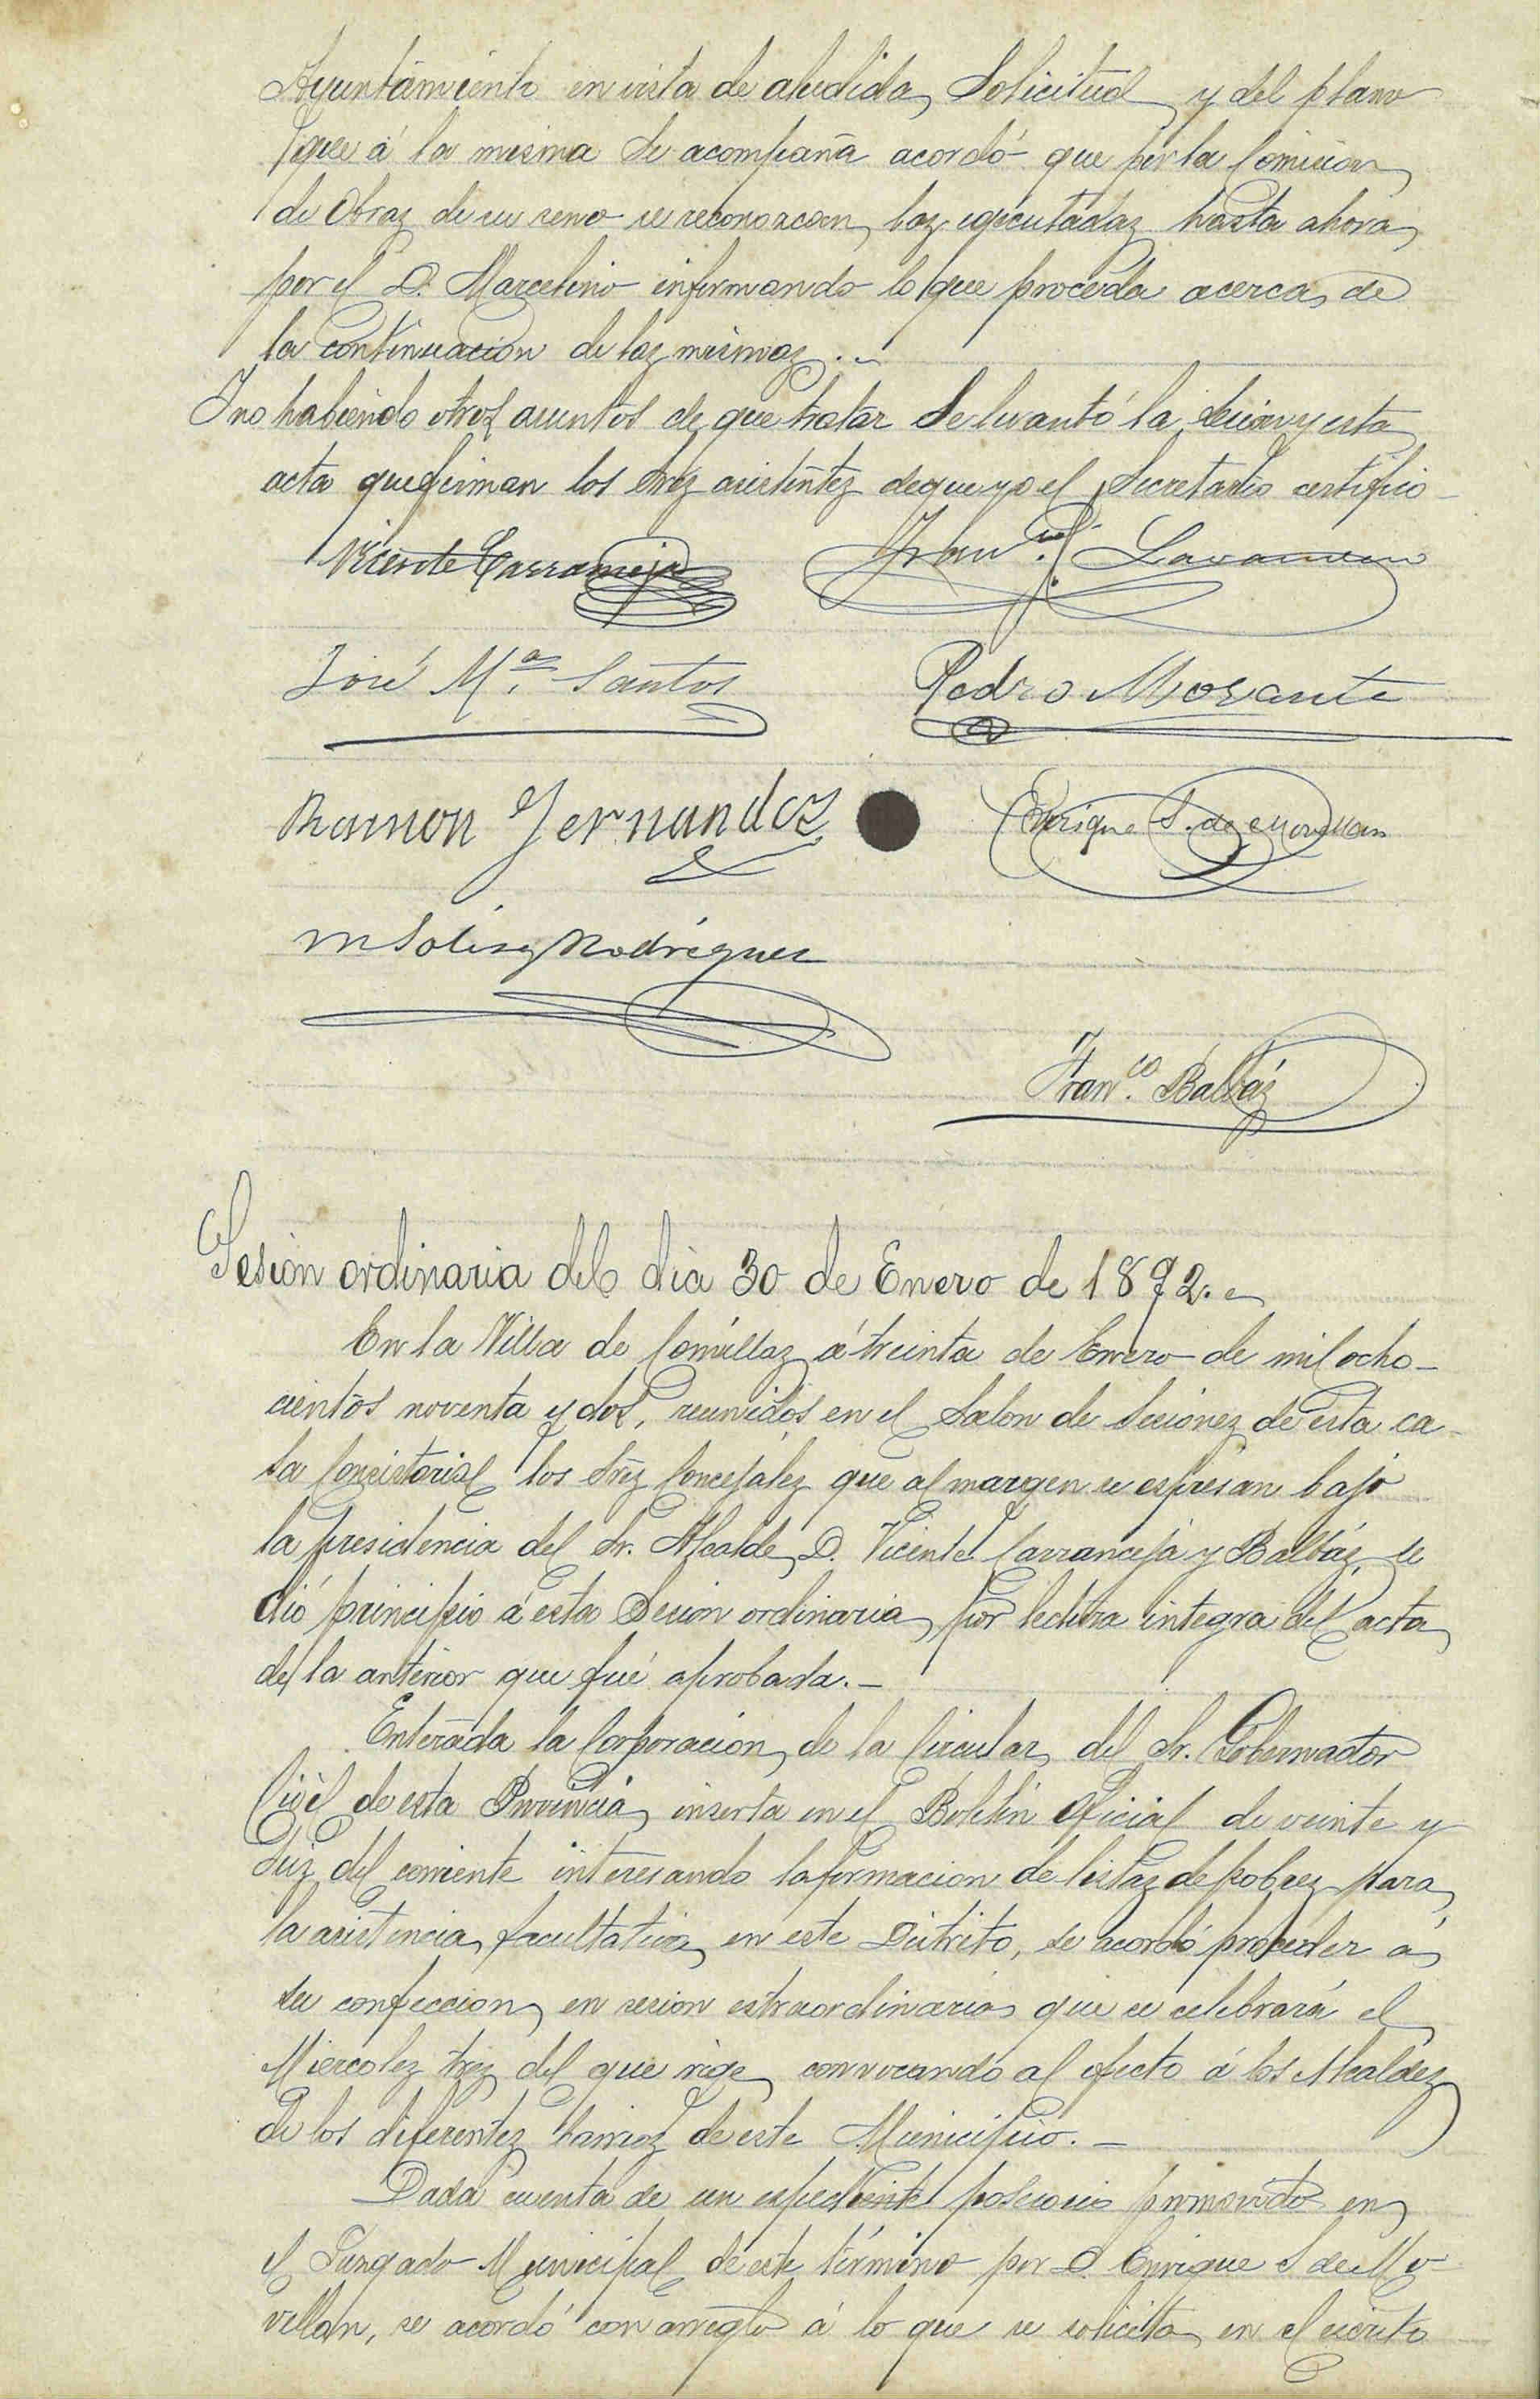 Ayuntamiento en vista de aludida Solicitud y del plano
que á la misma se acompaña acordó que por la Comision
de Obras de su seno se reconozcan las ejecutadas hasta ahora
por el D. Marcelino informando lo que proceda acerca de
la continuación de las mismas.
Y no habiendo otros asuntos de que tratar se levantó la sesion y esta
acta que firman los Sres asistentes de que yo el Secretario certifico
Vicente Carranceja
Franco
José Mª Santos
Pedro Morante
Ramon Fernandez
Enrique S. de Movellan
M Solis y Rodriguez
Franco. Balbás
Sesion ordinaria del dia 30 de Enero de 1892.
En la Villa de Comillas á treinta de Enero de mil ocho-
cientos noventa y dos, reunidos en el Salon de Sesiones de esta ca-
sa Consistorial los Sres Concejales que al margen se espresan bajo
la presidencia del Sr. Alcalde D. Vicente Carranceja y Balbás, se
dió principio á esta Sesion ordinaria por lectura integra del acta
de la anterior que fué aprobada.
Enterada la Corporación de la Circular del Sr. Gobernador
Civil de esta Provincia inserta en el Boletin Oficial de veinte y
seis del corriente interesando la formacion de listas de pobres para
la asistencia facultativa en este Distrito, se acordó proceder a
su confeccion en sesion estraordinaria que se celebrará el
Miercoles tres del que rige convocando al efecto á los Alcaldes
de los diferentes barrios de este Municipio.
Dada cuenta de un espediente posesorio promovido en
el Juzgado Municipal de este término por D. Enrique S de Mo-
vellan, se acordó con arreglo á lo que se solicita en el escrito